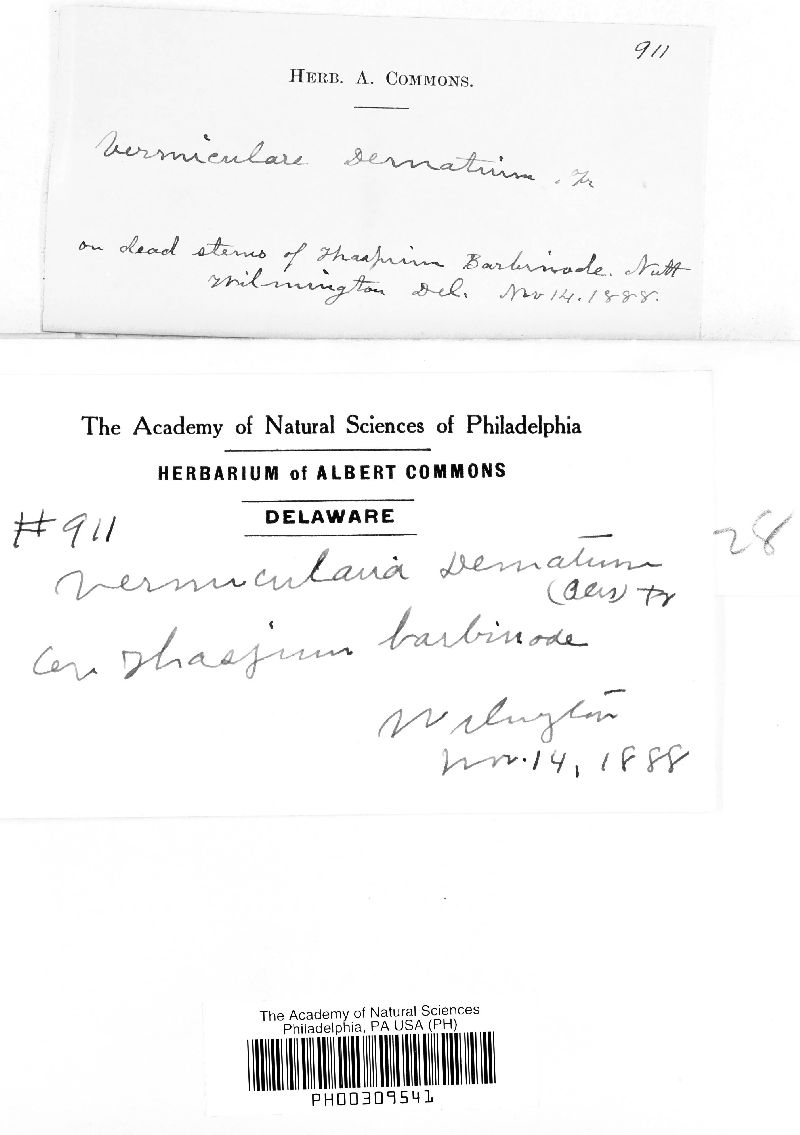 911
HERB. A. COMMONS.
Vermiculare Dematium. Fr
on dead stems of Thaspium Barbinode. Nutt
Wilmington Del. Nov 14. 1888.
The Academy of Natural Sciences of Philadelphia
HERBARIUM of ALBERT COMMONS
DELAWARE
#911
28
Vermicularia Dematium
(Pers) Fr
on Thaspium barbinode
Wilmington
Nov. 14, 1888
The Academy of Natural Sciences
Philadelphia, PA USA (PH)
PH00309541